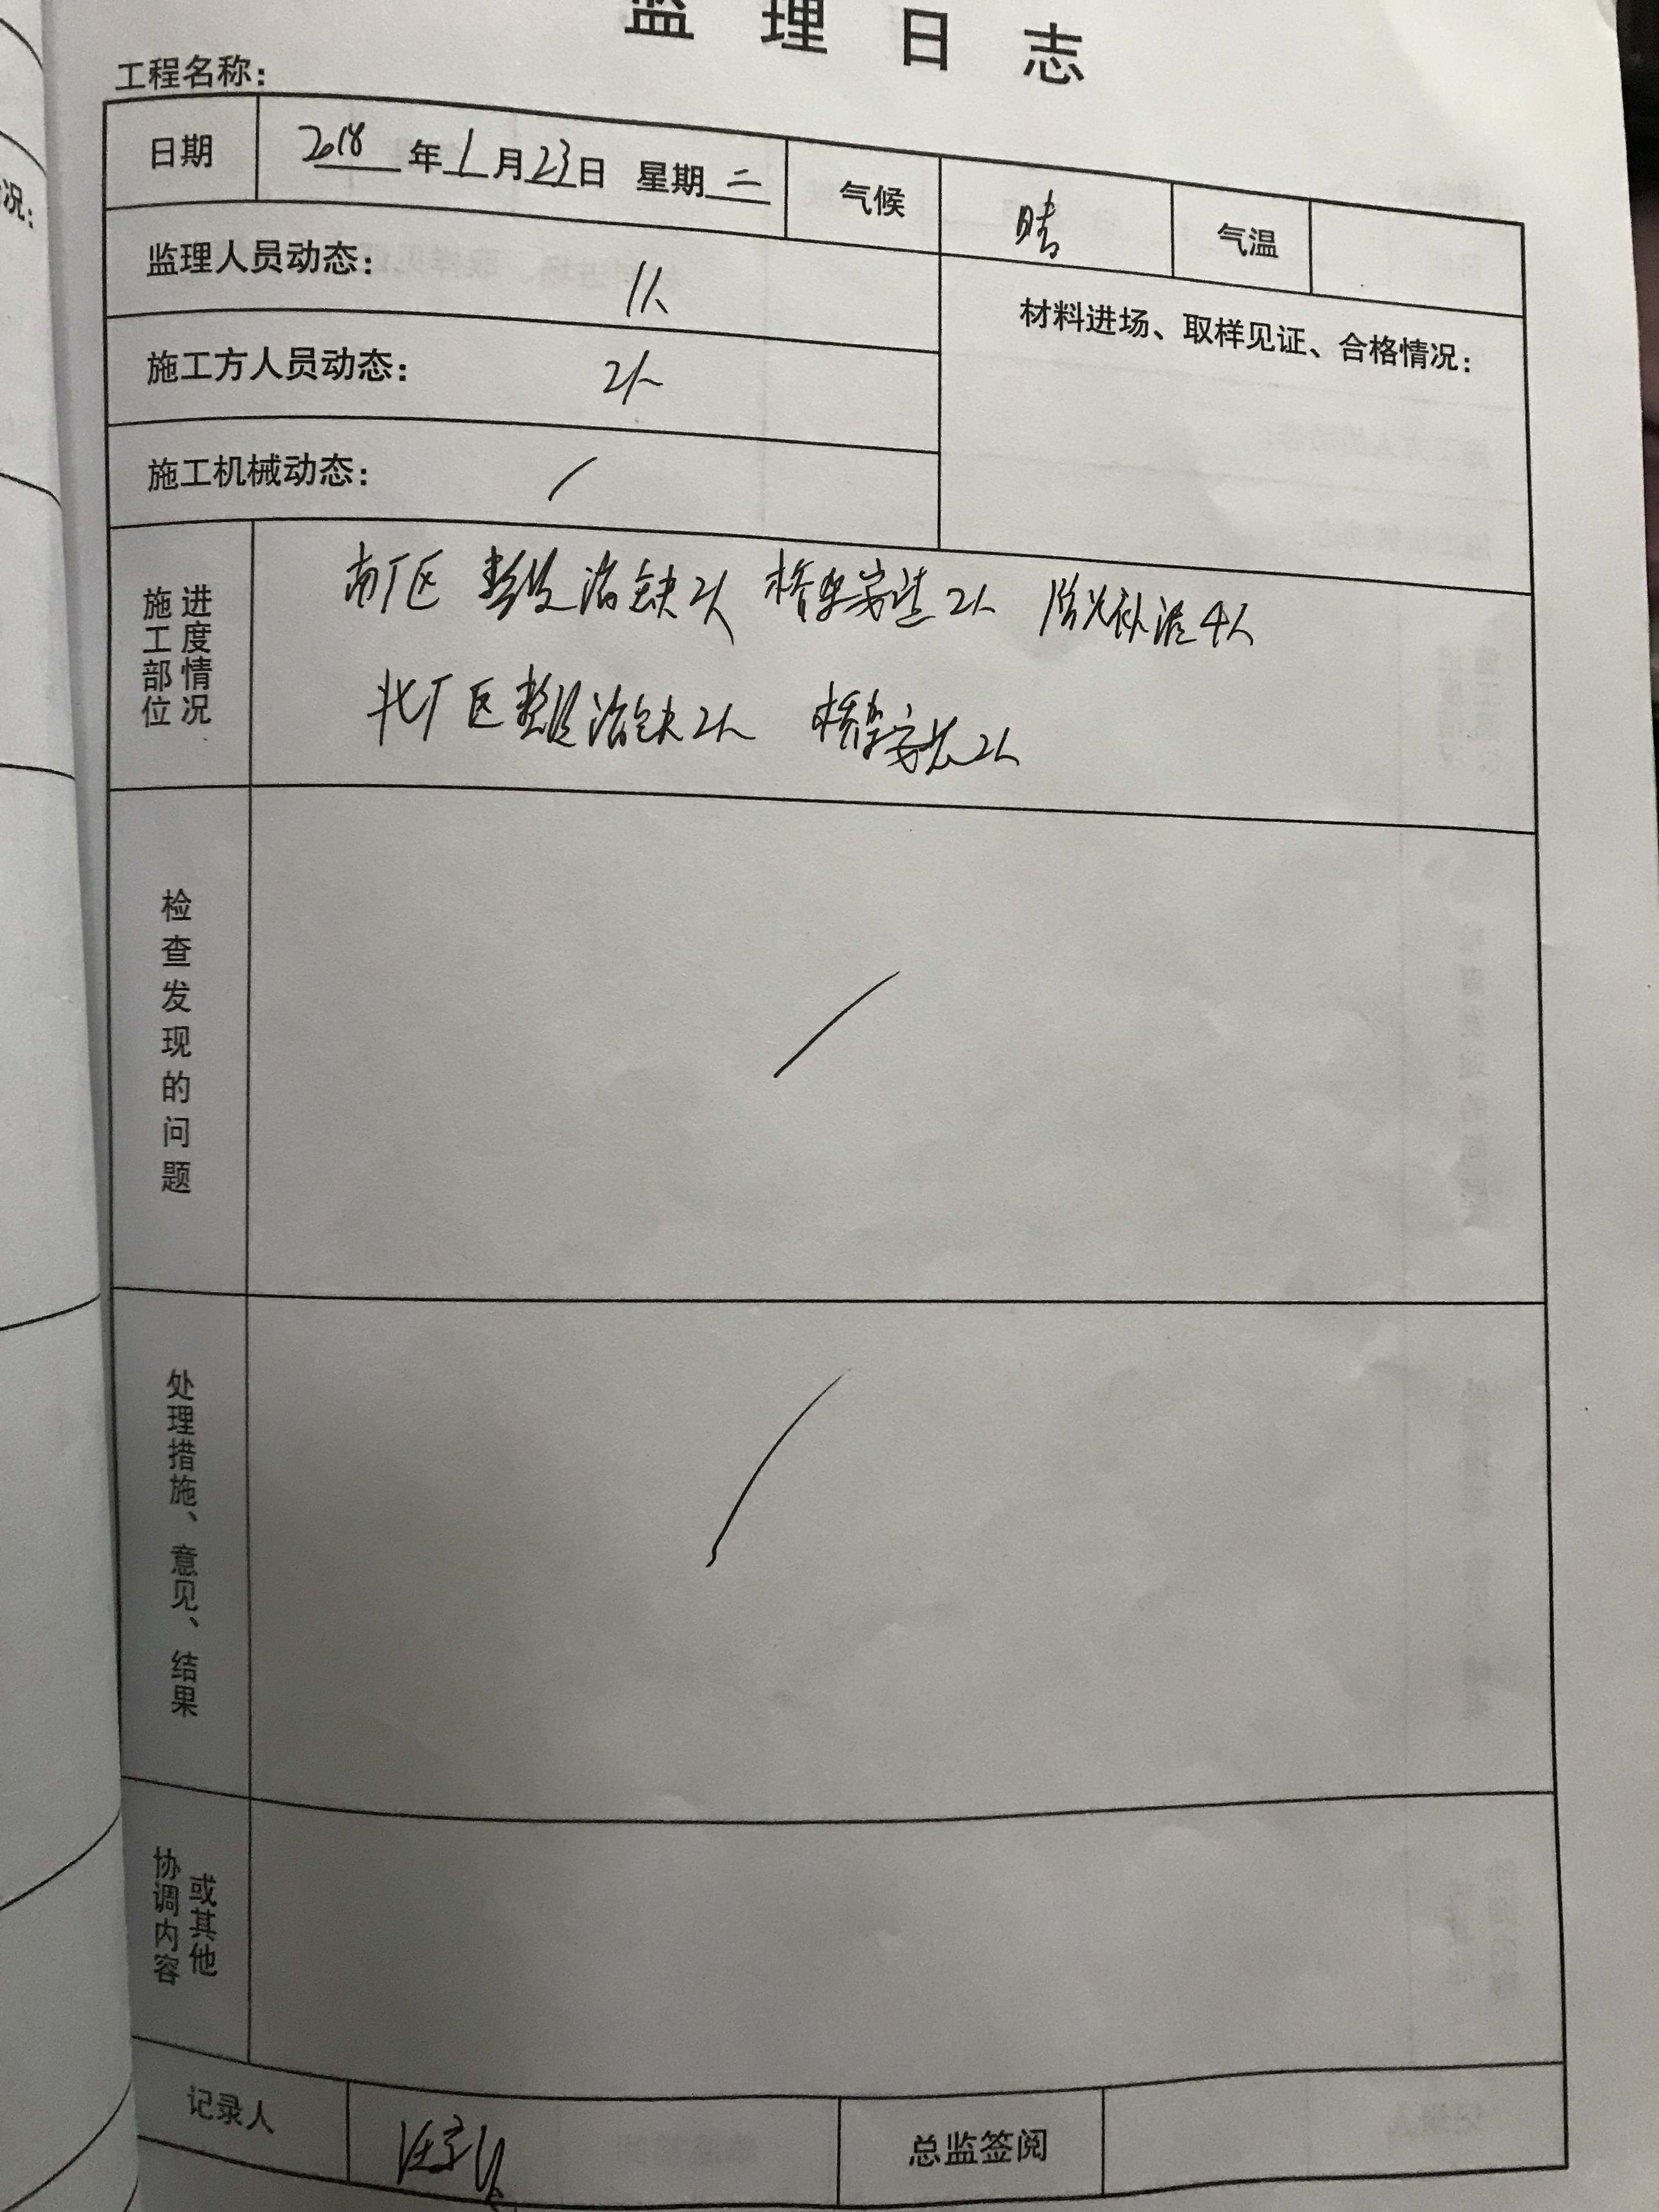 监理日志
工程名称：
日期 2018年1月23日 星期二 气候 晴 气温
监理人员动态： 1人
材料进场、取样见证、合格情况：
施工方人员动态： 2人
施工机械动态： /
施工部位
进度情况
南厂区 整段消缺2人 桥架安装2人 防火补漏4人
北厂区 整段消缺2人 桥架安装2人
检查发现的问题
/
处理措施、意见、结果
/
协调内容
或其他
记录人 总监签阅
况：